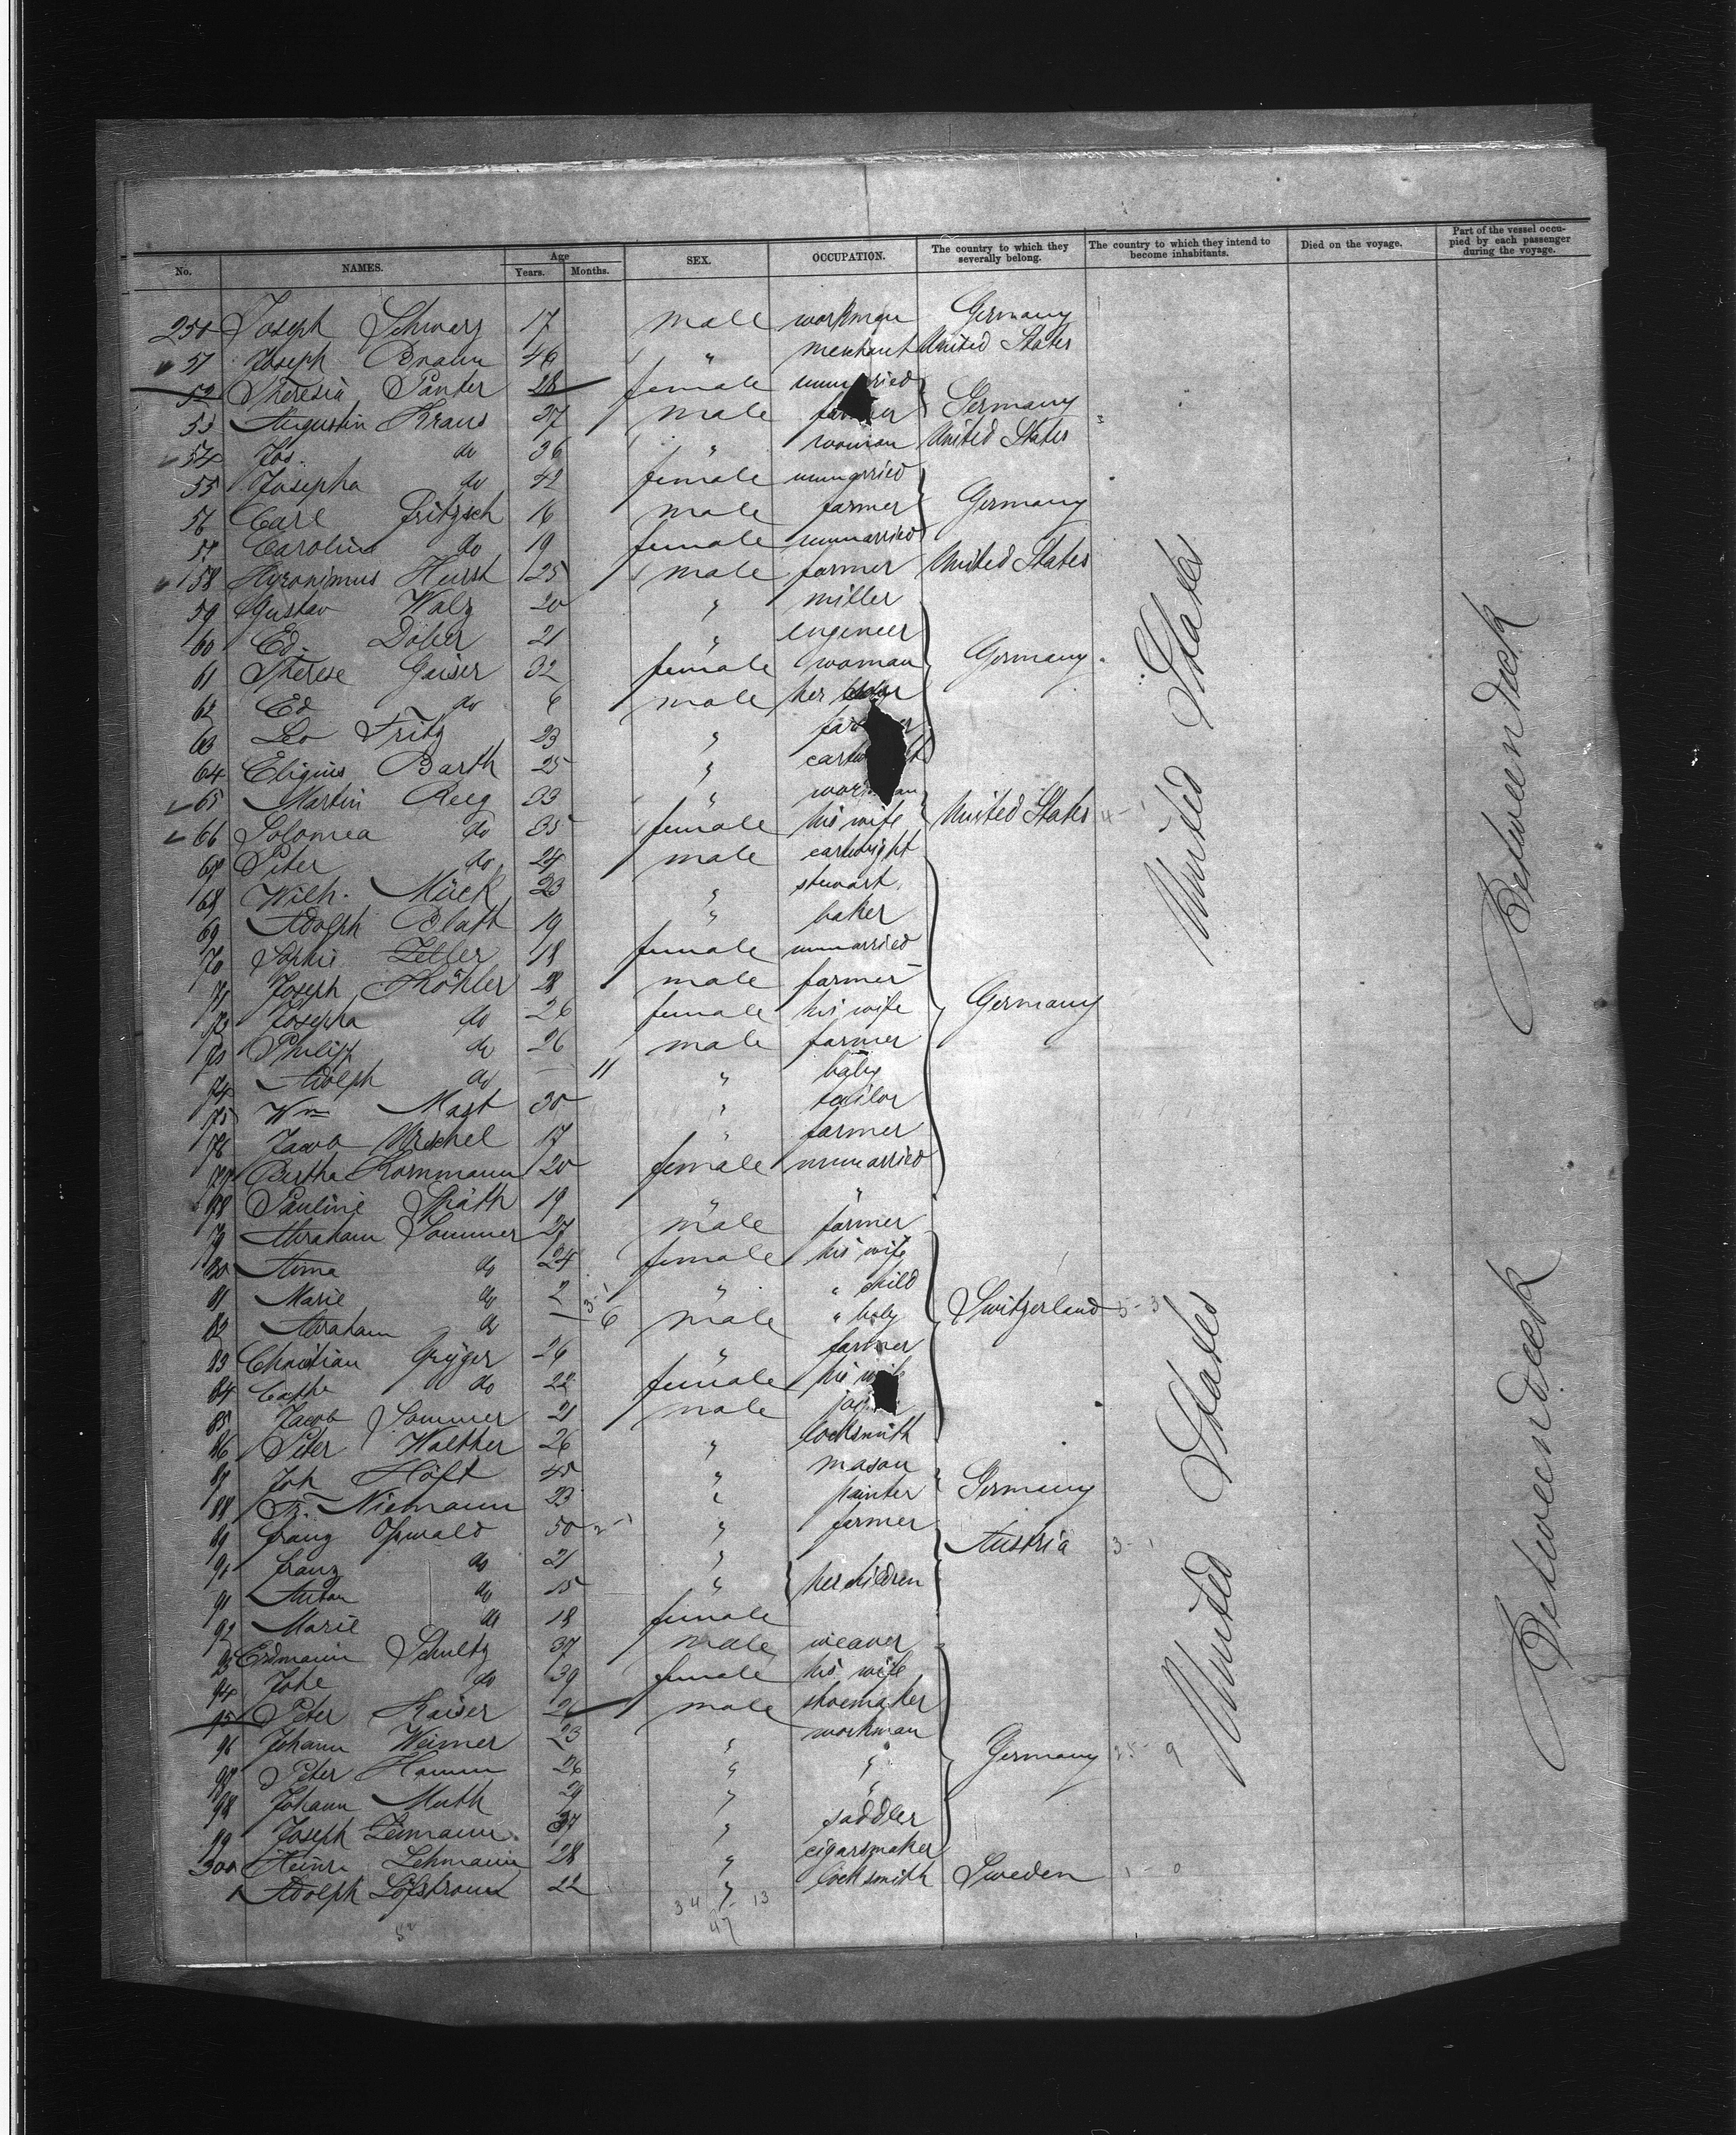 No. NAMES. Age Years. Months. SEX. OCCUPATION. The country to which they severally belong. The country to which they intend to become inhabitants. Died on the voyage. Part of the vessel occupied by each passenger during the voyage.
250 Joseph Schwarz 17 male workman Germany
51 Joseph Braun 46 " merchant United States
52 Theresia Panter 28 female unmarried
53 Augustin Kraus 37 male farmer Germany
54 Jos. do 36 " United States
55 Josepha do 42 female unmarried
56 Carl Fritzsch 16 male farmer Germany
57 Caroline do 19 female unmarried
58 Hyronimus Hurst 25 male farmer United States
59 Gustav Walz 20 " miller
60 Ed. Dober 21 " engineer
61 Therese Gaiser 32 female woman Germany
62 Ed do 6 male her
63 Leo Fritz 23 "
64 Eligius Barth 25 "
65 Martin Reeg 33 "
66 Solomea do 35 female his wife United States
67 Peter do 24 male cartwright
68 Wilh. Mück 23 " stewart
69 Adolph Blatt 19 " baker
70 Sophie Zeller 18 female unmarried
71 Joseph Köhler 28 male farmer
72 Josepha do 26 female his wife Germany
73 Philipp do 26 male farmer
74 Adolph do — 11 " baby
75 Wm Mast 30 " tailor
76 Jacob Urschel 17 " farmer
77 Bertha Kornmann 20 female unmarried
78 Pauline Späth 19 " "
79 Abraham Sommer 27 male farmer
80 Anna do 24 female his wife
81 Marie do 2 " " child
82 Abraham do — 6 male " baby Switzerland
83 Christian 26 " farmer
84 Cathe do 22 female his wife
85 Jacob Sommer 21 male
86 Peter Walther 26 " locksmith
87 Joh Höft 45 " mason
88 Fr. Niemann 23 " painter Germany
89 Franz Oswald 50 " farmer
90 Franz do 21 " Austria
91 Anton do 15 " her children
92 Marie do 18 female
93 Erdmann Schultz 37 male weaver
94 Johe do 39 female his wife
95 Peter Kaiser 26 male shoemaker
96 Johann Weimer 23 " workman
97 Peter Hamm 26 " " Germany
98 Johann Muth 29 " "
99 Joseph Leimann 37 " saddler
300 Heinr Lehmann 28 " cigarsmaker
1 Adolph Löfstroem 22 " locksmith Sweden
34 - 13
47
United States
United States
Betweendeck
Betweendeck